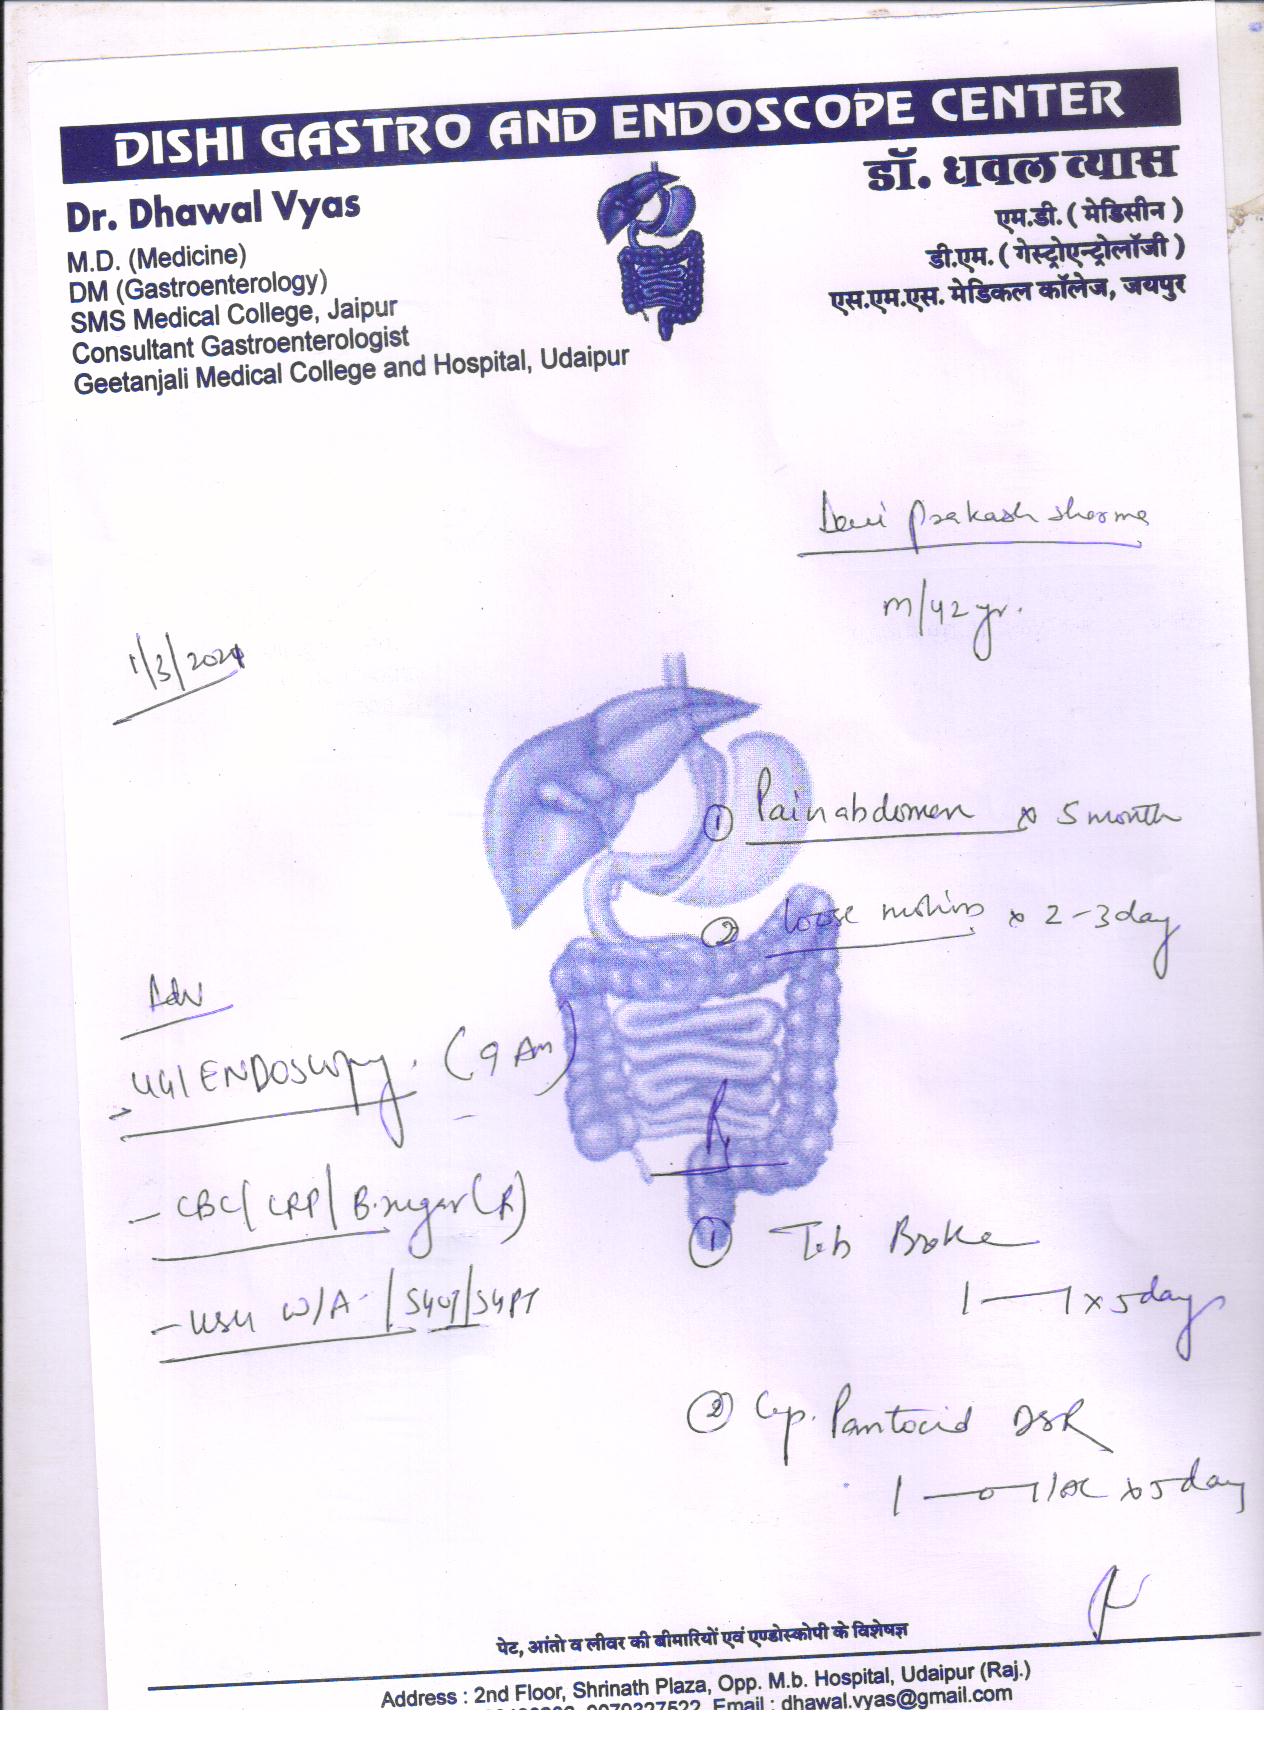 DISHI GASTRO AND ENDOSCOPE CENTER
Dr. Dhawal Vyas
M.D. (Medicine)
DM (Gastroenterology)
SMS Medical College, Jaipur
Consultant Gastroenterologist
Geetanjali Medical College and Hospital, Udaipur
डॉ. धवल व्यास
एम.डी. ( मेडिसीन )
डी.एम. ( गेस्ट्रोएन्ट्रोलॉजी )
एस.एम.एस. मेडिकल कॉलेज, जयपुर
Prakash Sharma
M/42 yr.
1/3/2024
① Pain abdomen x 5 month
② loose motions x 2-3 day
Adv
UGI ENDOSCOPY. (9 Am)
- CBC/CRP/B.sugar (R)
- USG W/A / SGOT/SGPT
R
① Tab
1 — 1 x 5 days
② Cap. Pantocid DSR
1 — 0 x 5 day
पेट, आंतो व लीवर की बीमारियों एवं एण्डोस्कोपी के विशेषज्ञ
Address : 2nd Floor, Shrinath Plaza, Opp. M.b. Hospital, Udaipur (Raj.)
Email : dhawal.vyas@gmail.com